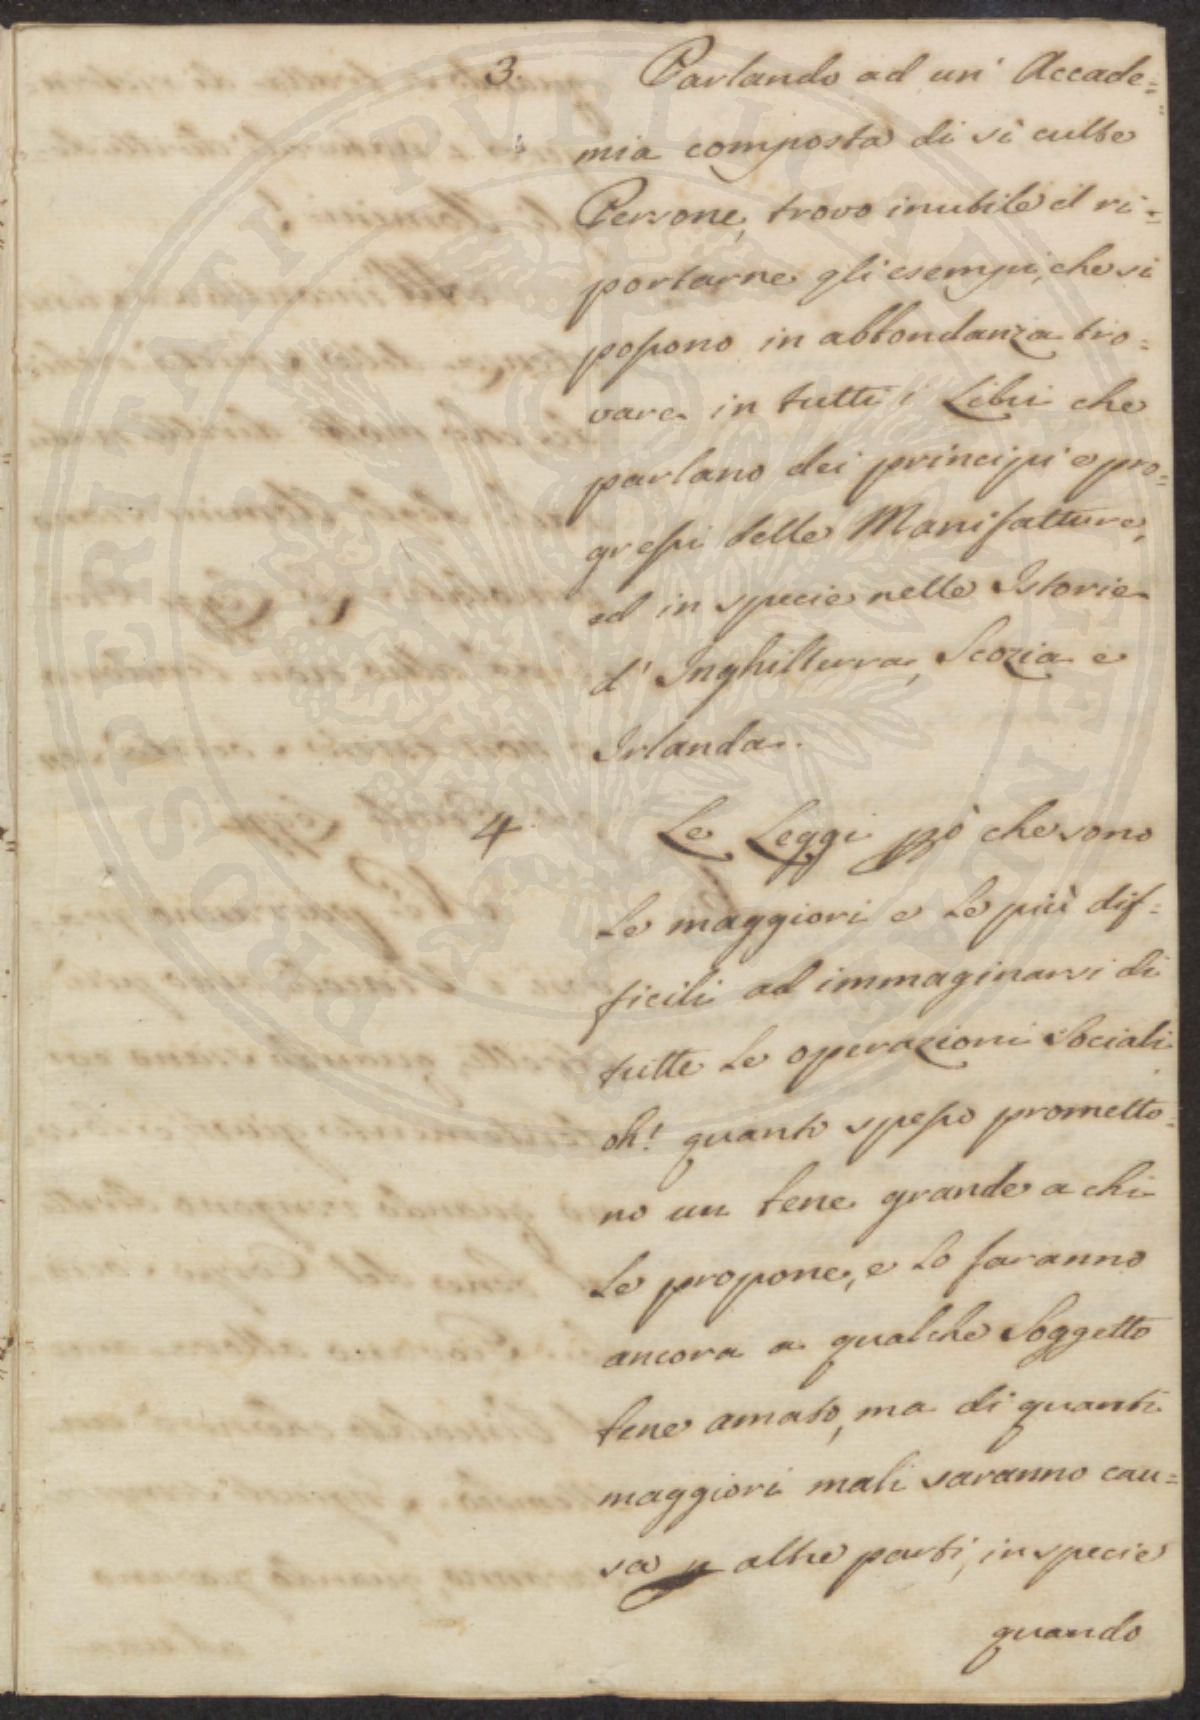 3. Parlando ad un' Accade=
mia composta di sì culte
Persone, trovo inutile il ri=
portarne gli esempi, che si
possono in abbondanza tro=
vare in tutti i Libri che
parlano dei principi e pro=
gressi delle Manifatture,
ed in specie nelle Istorie
d' Inghilterra, Scozia e
Irlanda.
4. Le Leggi pò che sono
le maggiori e le più dif=
ficili ad immaginarsi di
tutte le operazioni sociali
oh! quanto spesso prometto=
no un bene grande a chi
le propone, e lo faranno
ancora a qualche Soggetto
bene amato, ma di quanti
maggiori mali saranno cau=
sa p altre parti, in specie
quando
PROSPERITATI PUBLICAE AUGENDAE